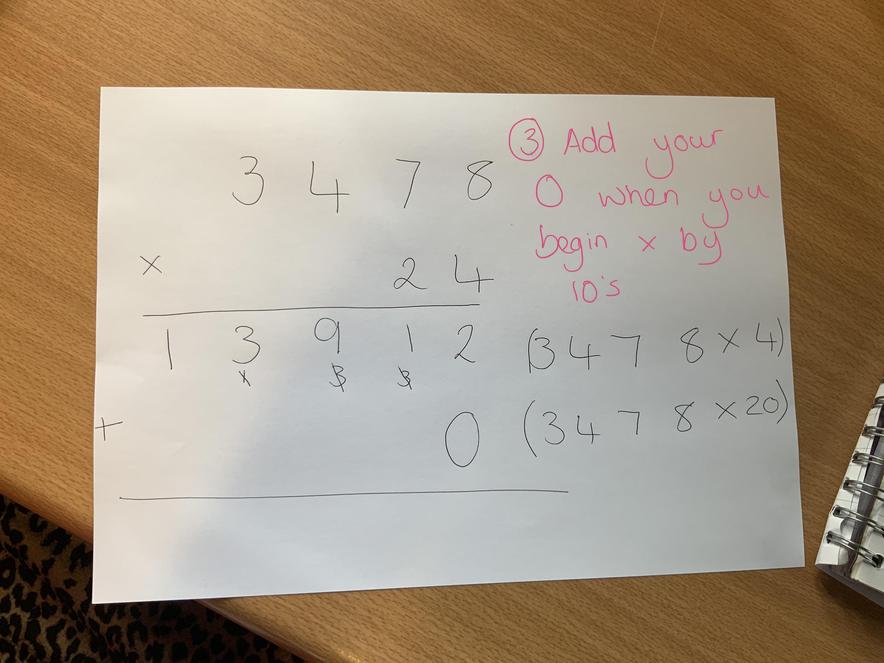 ③ Add your
0 when you
begin × by
10's
3 4 7 8
× 2 4
1 3 9 1 2 (3 4 7 8 × 4)
1 3 3
+ 0 (3 4 7 8 × 20)